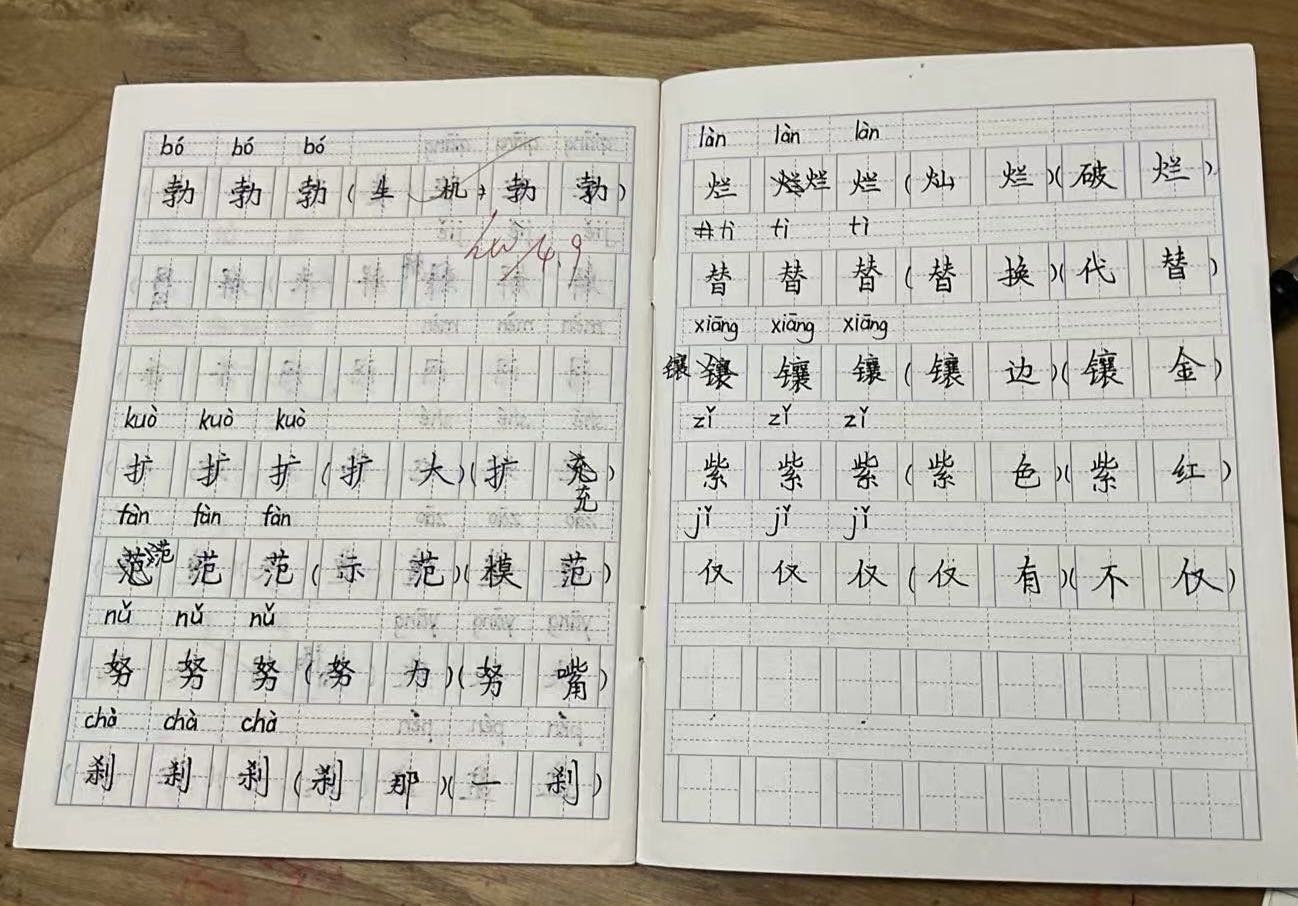 bó bó bó
勃 勃 勃 (生 机 勃 勃)
4.9
kuò kuò kuò
扩 扩 扩 (扩 大)(扩 充)
充
fàn fàn fàn
范 范 范 (示 范)(模 范)
nǔ nǔ nǔ
努 努 努 (努 力)(努 嘴)
chà chà chà
刹 刹 刹 (刹 那)(一 刹)
làn làn làn
烂 烂 烂 (灿 烂)(破 烂)
tì tì tì
替 替 替 (替 换)(代 替)
xiāng xiāng xiāng
镶 镶 镶 镶 (镶 边)(镶 金)
zǐ zǐ zǐ
紫 紫 紫 (紫 色)(紫 红)
jǐ jǐ jǐ
仅 仅 仅 (仅 有)(不 仅)